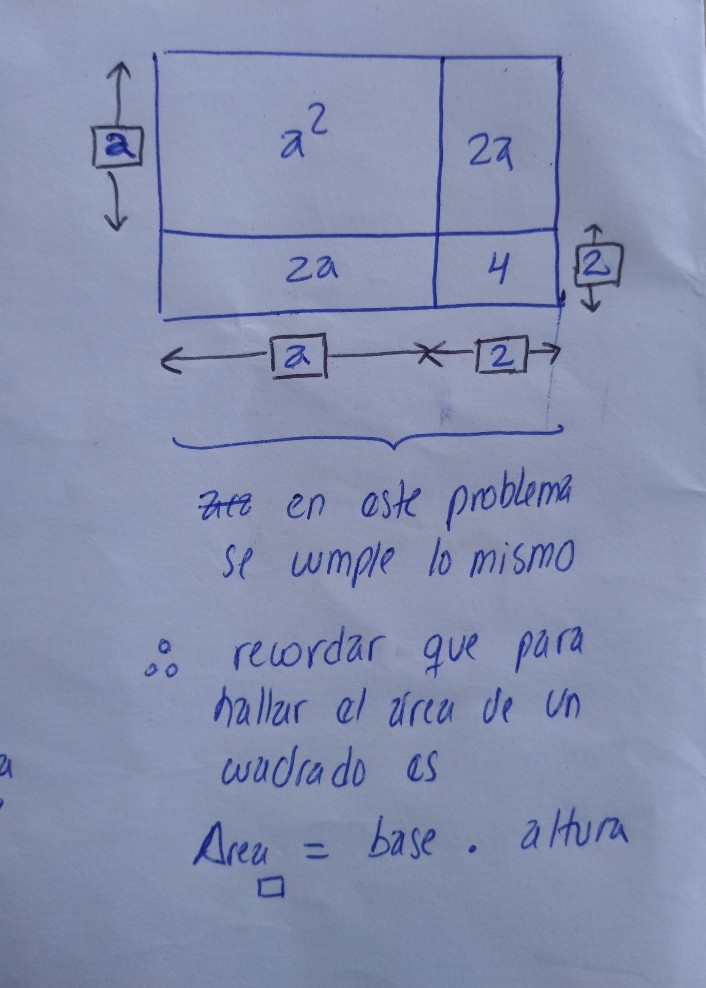 a² 2a
a
2a 4 2
a 2
en este problema
se cumple lo mismo
∴ recordar que para
hallar el área de un
cuadrado es
a
Area□ = base . altura